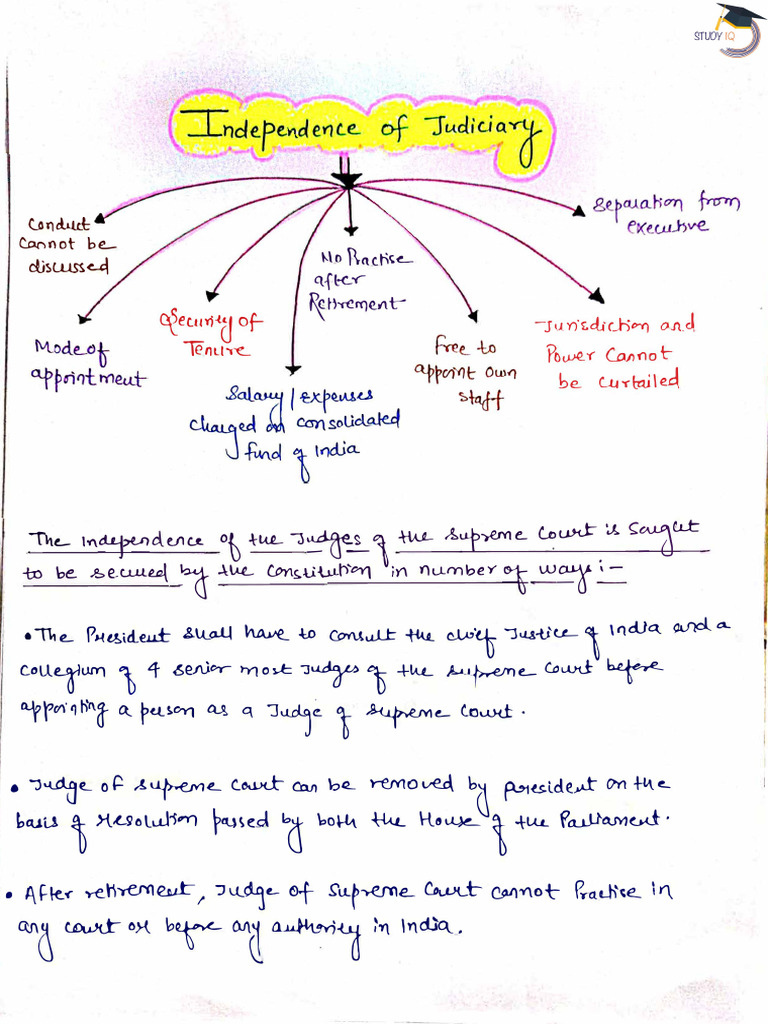 STUDY IQ
Independence of Judiciary
Conduct
Cannot be
discussed
Mode of
appointment
Security of
Tenure
Salary / expenses
charged on consolidated
fund of India
No Practise
after
Retirement
Free to
appoint own
staff
Jurisdiction and
Power Cannot
be curtailed
Separation from
executive
The Independence of the Judges of the Supreme Court is Sought
to be secured by the Constitution in number of ways :-
• The President shall have to consult the chief Justice of India and a
collegium of 4 senior most Judges of the supreme court before
appointing a person as a Judge of supreme court.
• Judge of supreme court can be removed by president on the
basis of resolution passed by both the House of the Parliament.
• After retirement, Judge of Supreme Court cannot Practise in
any court or before any authority in India.